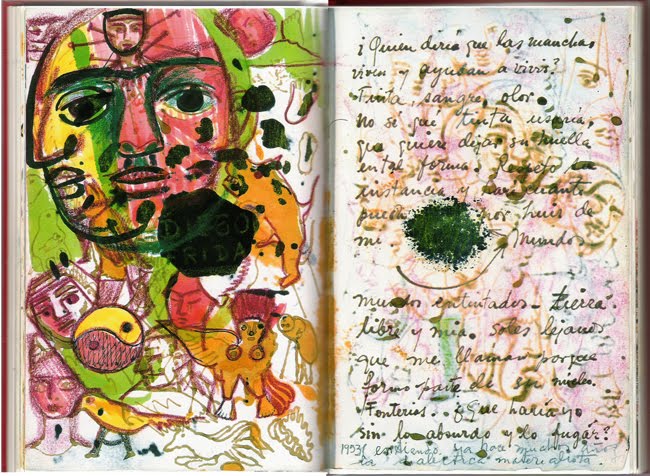 DIEGO
FRIDA
¿Quien diria que las manchas
viven y ayudan a vivir?
Tinta, sangre, olor.
no sé qué tinta usaría,
que quiere dejar su huella
en tal forma. Respeto su
instancia y haré cuanto
pueda por huir de
mi Mundos
mundos entintados - tierra
libre y mia. Soles lejanos
que me llaman porque
formo parte de su núcleo.
Tonterias. ¿Que haria yo
sin lo absurdo y lo fugáz?
1953 entiendo ya hace muchos años
la dialectica materialista